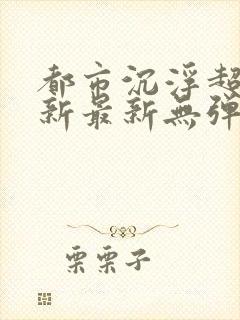 都市沉浮超
新最新無弹
栗栗子